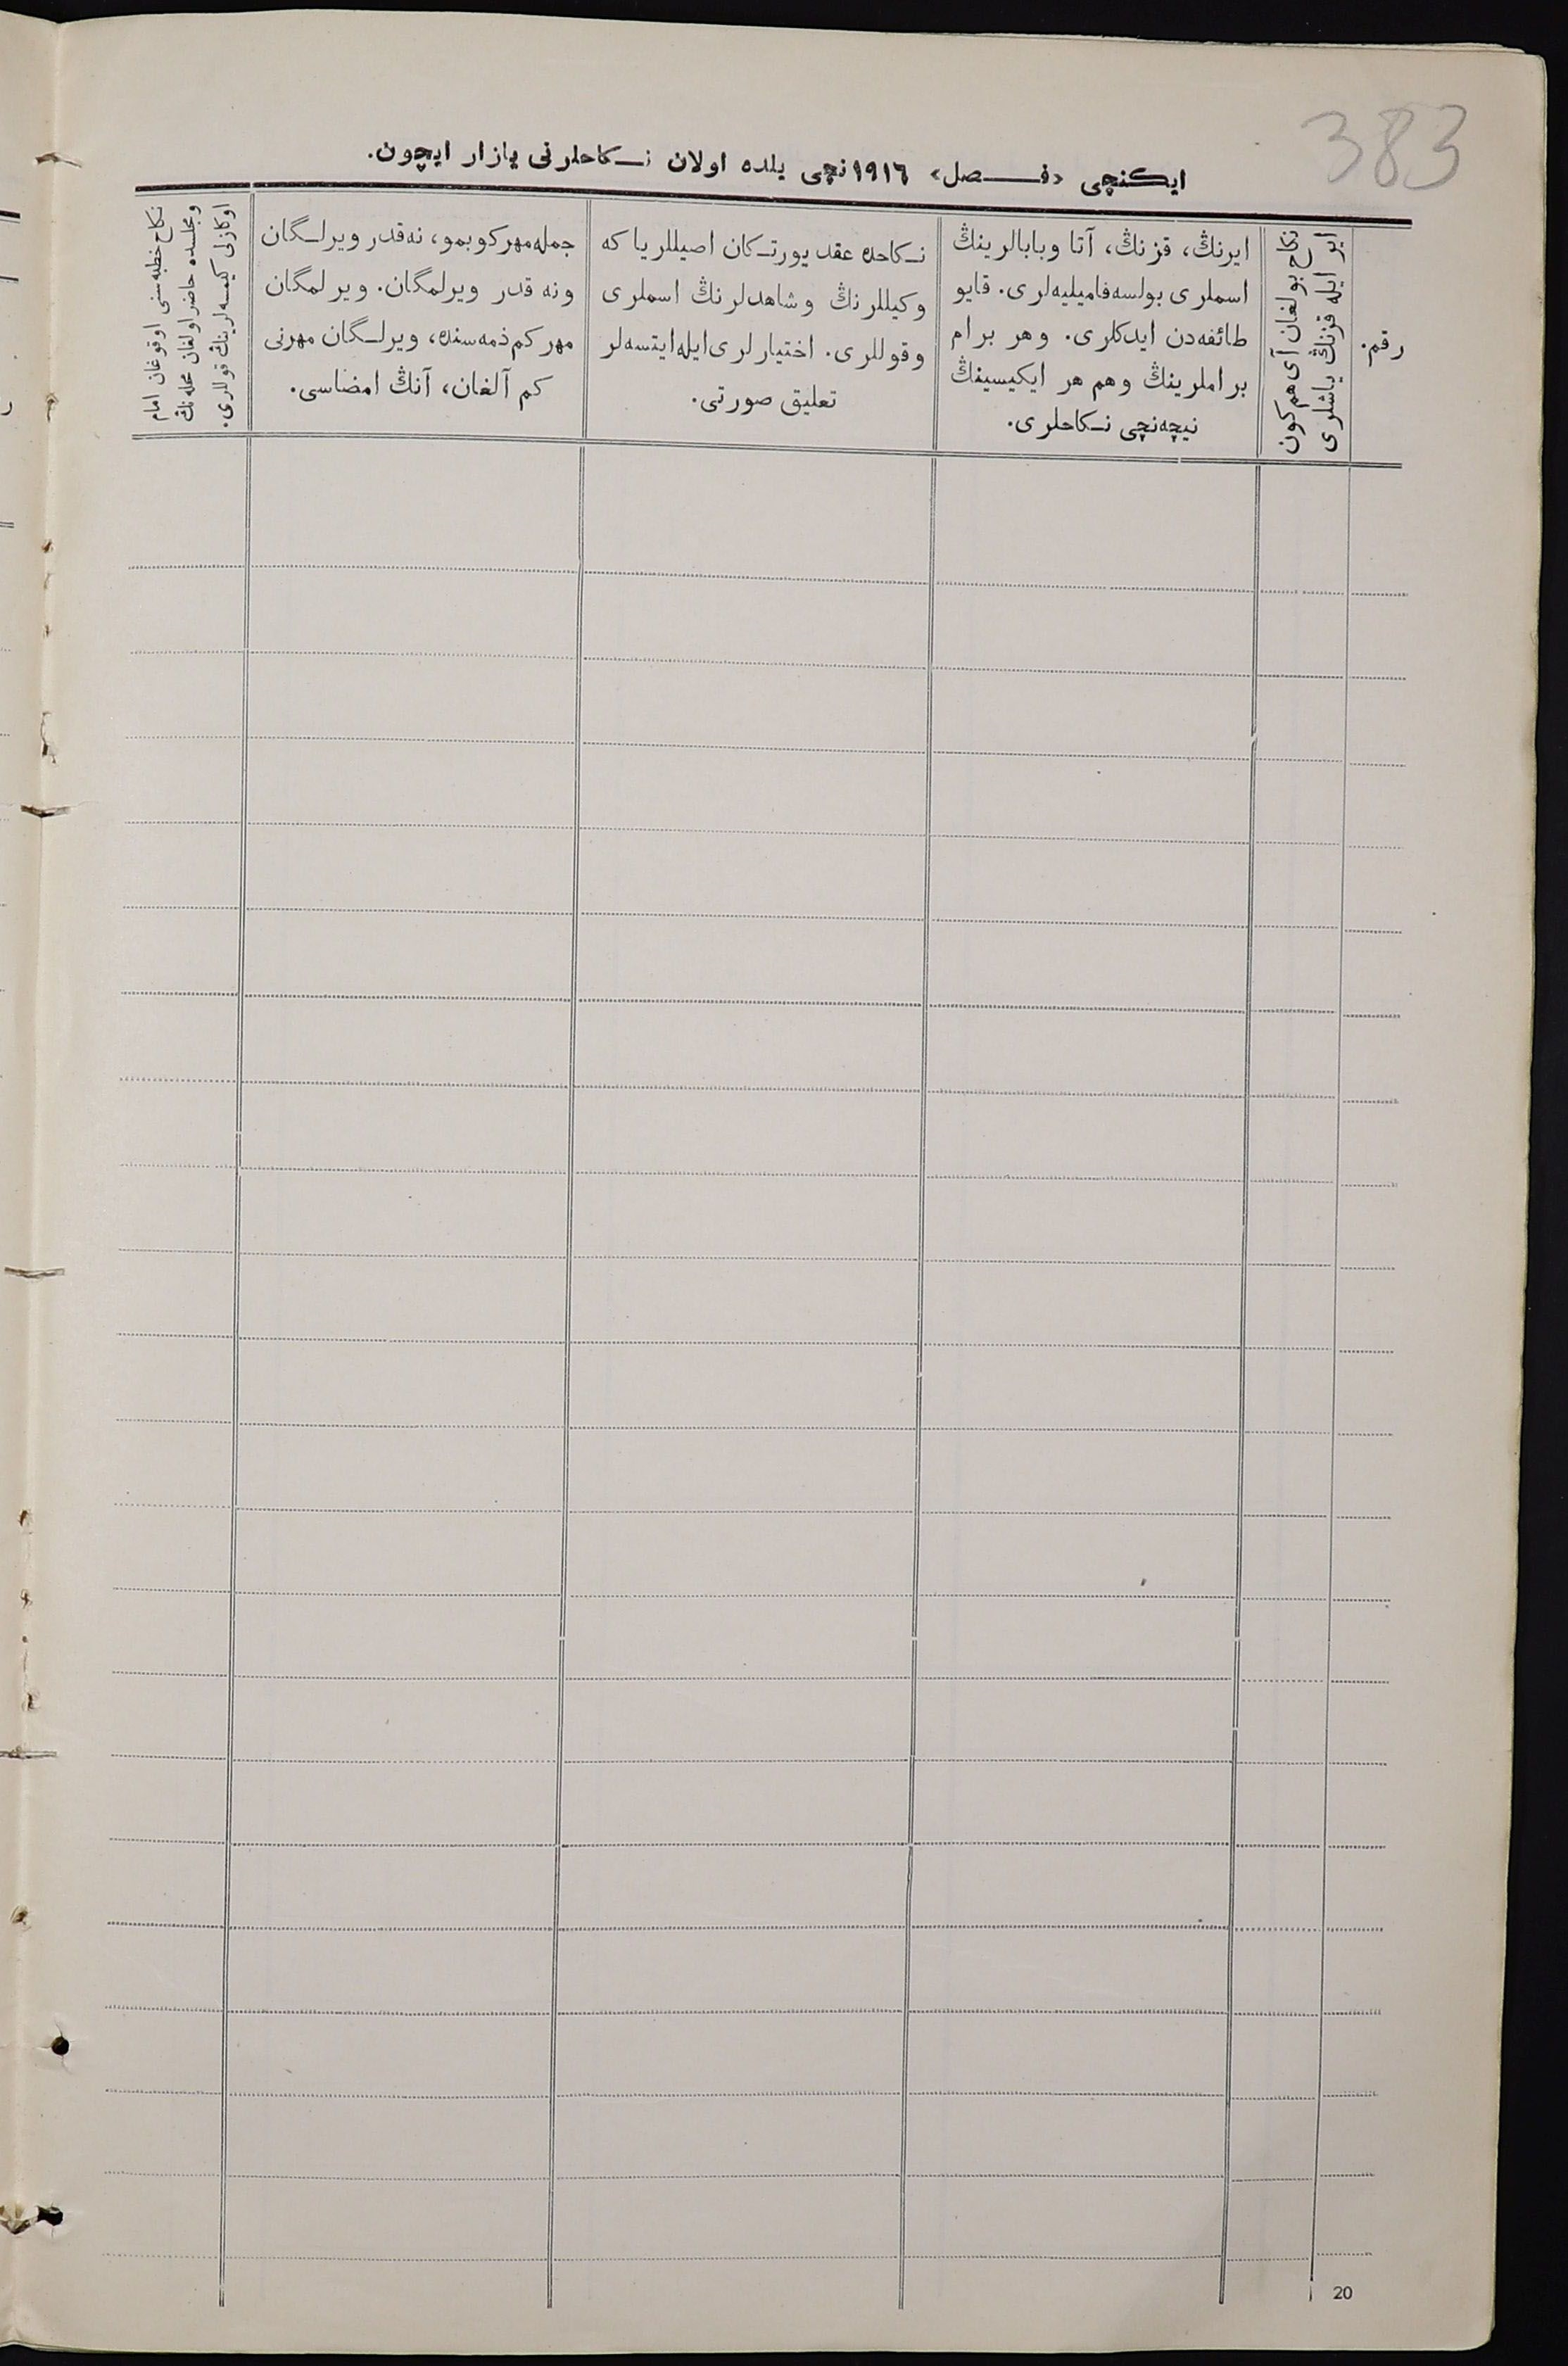 383
ایكنچی «فصل» ١٩١٦نچی یلده اولان نكاحلرنی یازار ایچون.
رقم.
نكاح بولغان آی هم كون
ایر ایله قزنڭ یاشلری
ایرنڭ، قزنڭ، آتا وبابالرینڭ
اسملری بولسه فامیلیه‌لری. قایو
طائفه‌دن ایدكلری. وهر برام
براملرینڭ وهم هر ایكیسینڭ
نیچه‌نچی نكاحلری.
نكاحده عقد یورتكان اصیللر یا كه
وكیللرنڭ وشاهدلرنڭ اسملری
وقوللری. اختیارلری ایله ایتسه‌لر
تعلیق صورتی.
جمله مهر كوبمو، نه‌قدر ویرلگان
ونه قدر ویرلمگان. ویرلمگان
مهر كم ذمه‌سنده، ویرلگان مهرنی
كم آلغان، آنڭ امضاسی.
نكاح خطبه‌سنی اوقوغان امام
ومجلسده حاضر اولغان محله‌نڭ
اوكازلی كیمسه‌لرینڭ قوللری.
20